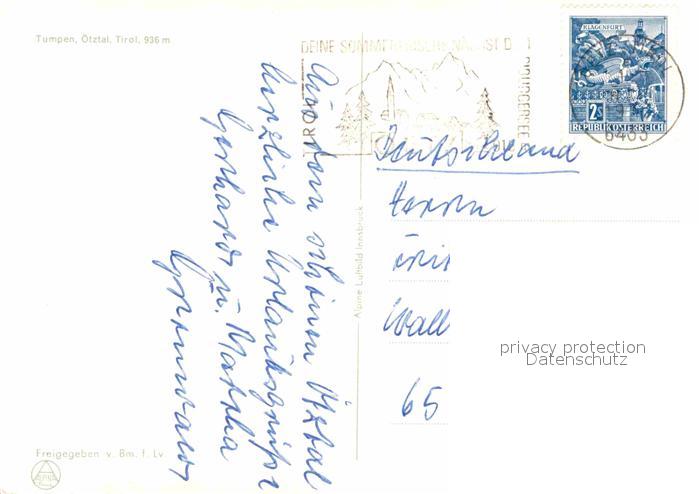 Tumpen, Ötztal, Tirol, 936 m
Aus dem schönen Ötztal
herzliche Urlaubsgrüße
Gerhard u. Martha
Grunwald
Freigegeben v. Bm. f. Lv.
ALPINE
Alpine Luftbild Innsbruck
DEINE SOMMERFRISCHE NÄCHST D.
TIROL
KLAGENFURT
2S
REPUBLIK ÖSTERREICH
Deutschland
Herrn
Wall
65
privacy protection
Datenschutz